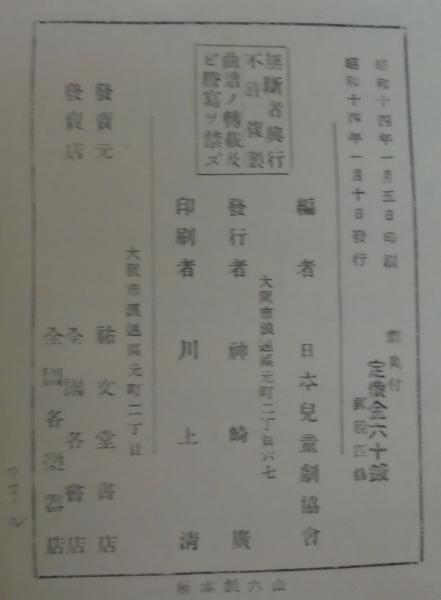 昭和十四年一月五日印刷
昭和十四年一月十日發行
劇集付
定價金六十錢
郵税四錢
無斷者興行
不許複製
曲譜ノ轉載及
ビ謄寫ヲ禁ズ
編者 日本兒童劇協會
大阪市浪速區元町二丁目六七
發行者 神崎廣
印刷者 川上清
大阪市浪速區元町二丁目
發賣元 祐文堂書店
發賣店 全國各書店
全國各樂器店
山六製本所